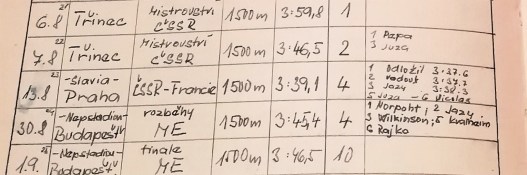 21
6.8 Třinec Mistrovství ČSSR 1500m 3:59,8 1
22
7.8 Třinec Mistrovství ČSSR 1500m 3:46,5 2 1 Pzpa 3 Juza
23
13.8 -Slavia- Praha ČSSR-Francie 1500m 3:39,1 4 1 Odložil 3:37.6
2 3:37,7
3 Jazy 3:38.3
24
30.8 -Nepstadion- Budapešť rozběhy ME 1500m 3:45,4 4 1 Norpoht; 2 Jazy
3 Wilkinson; 5
6 Rajko
25
1.9. -Nepstadion- Budapešť finale ME 1500m 3:46,5 10